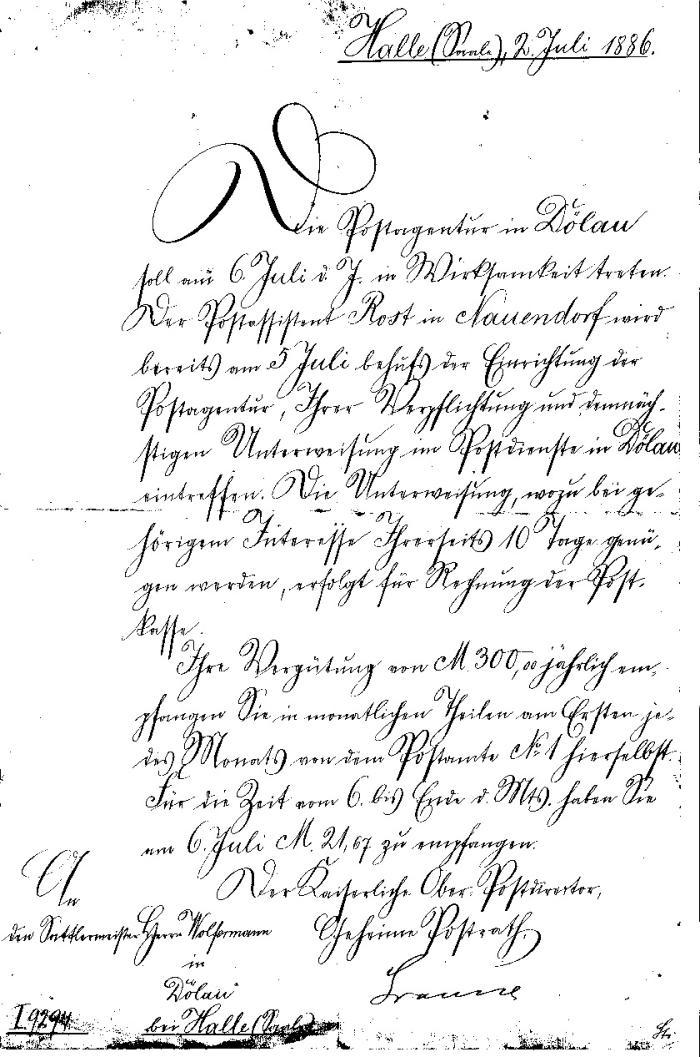 Halle (Saale), 2. Juli 1886.
Die Postagentur in Dölau
soll am 6. Juli d. J. in Wirksamkeit treten.
Der Postassistent Rost in Nauendorf wird
bereits am 5 Juli behufs der Einrichtung der
Postagentur, Ihrer Verpflichtung und demnäch-
stigen Unterweisung im Postdienste in Dölau
eintreffen. Die Unterweisung, wozu bei ge-
hörigem Interesse Ihrerseits 10 Tage genü-
gen werden, erfolgt für Rechnung der Post-
kasse.
Ihre Vergütung von M 300,00 jährlich em-
pfangen Sie in monatlichen Theilen am Ersten je-
des Monats von dem Postamte No 1 hierselbst.
Für die Zeit vom 6. bis Ende d. Mts. haben Sie
am 6. Juli M. 21,67 zu empfangen.
Der Kaiserliche Ober-Postdirector,
Geheime Postrath
An
den Sattlermeister Herrn
in
Dölau
bei Halle (Saale)
I 9294